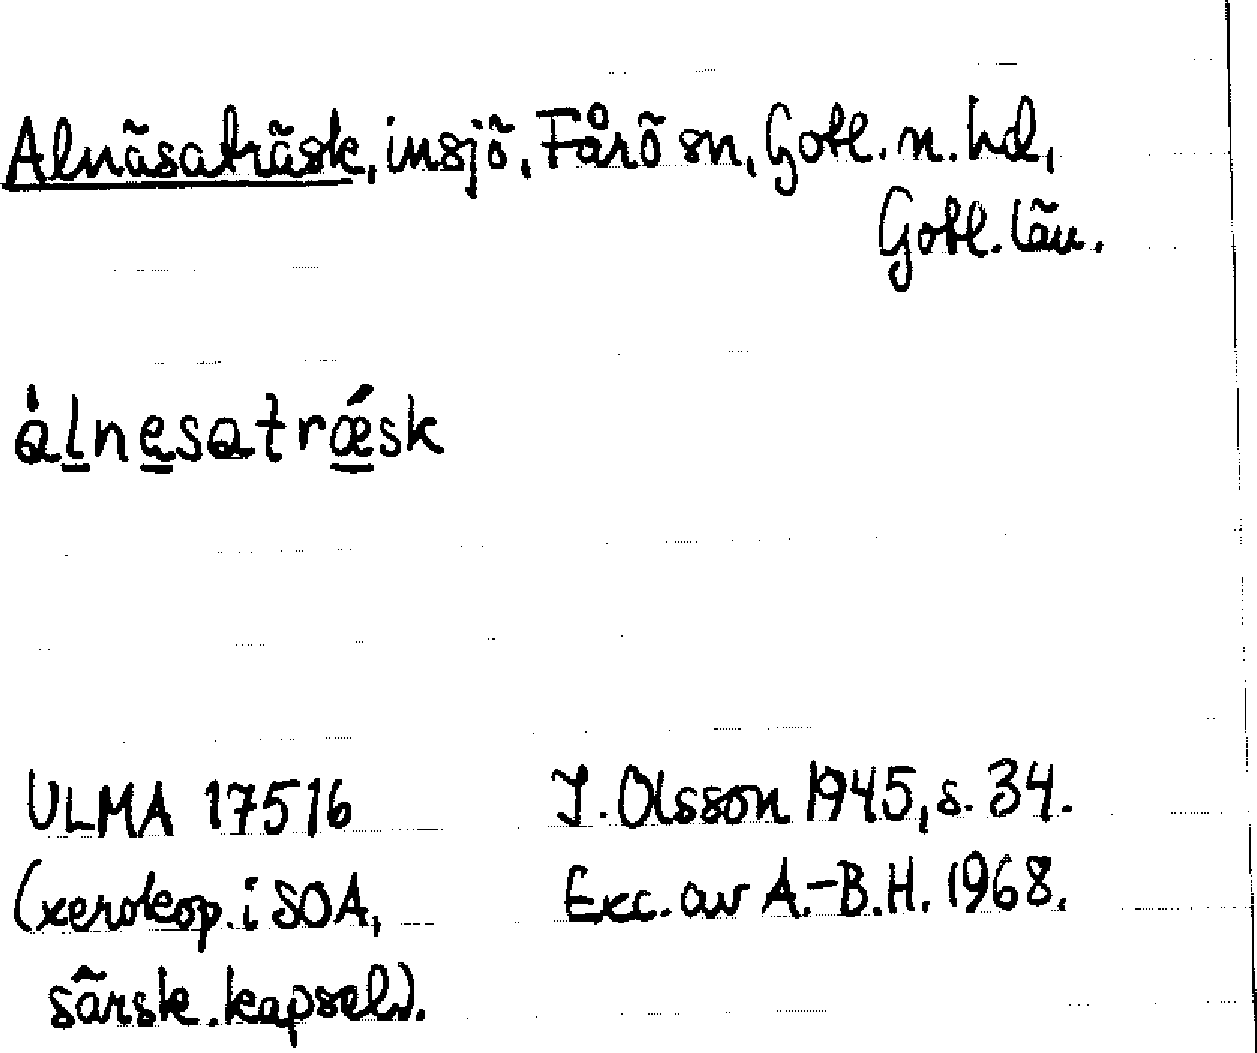 Alnäsaträsk, insjö, Fårö sn, Gotl. n. hd,
Gotl. län.
àlnesatrǽsk
ULMA 17516
(xerokop. i SOA,
särsk. kapsel).
I. Olsson 1945, s. 34.
Exc. av A.-B.H. 1968.